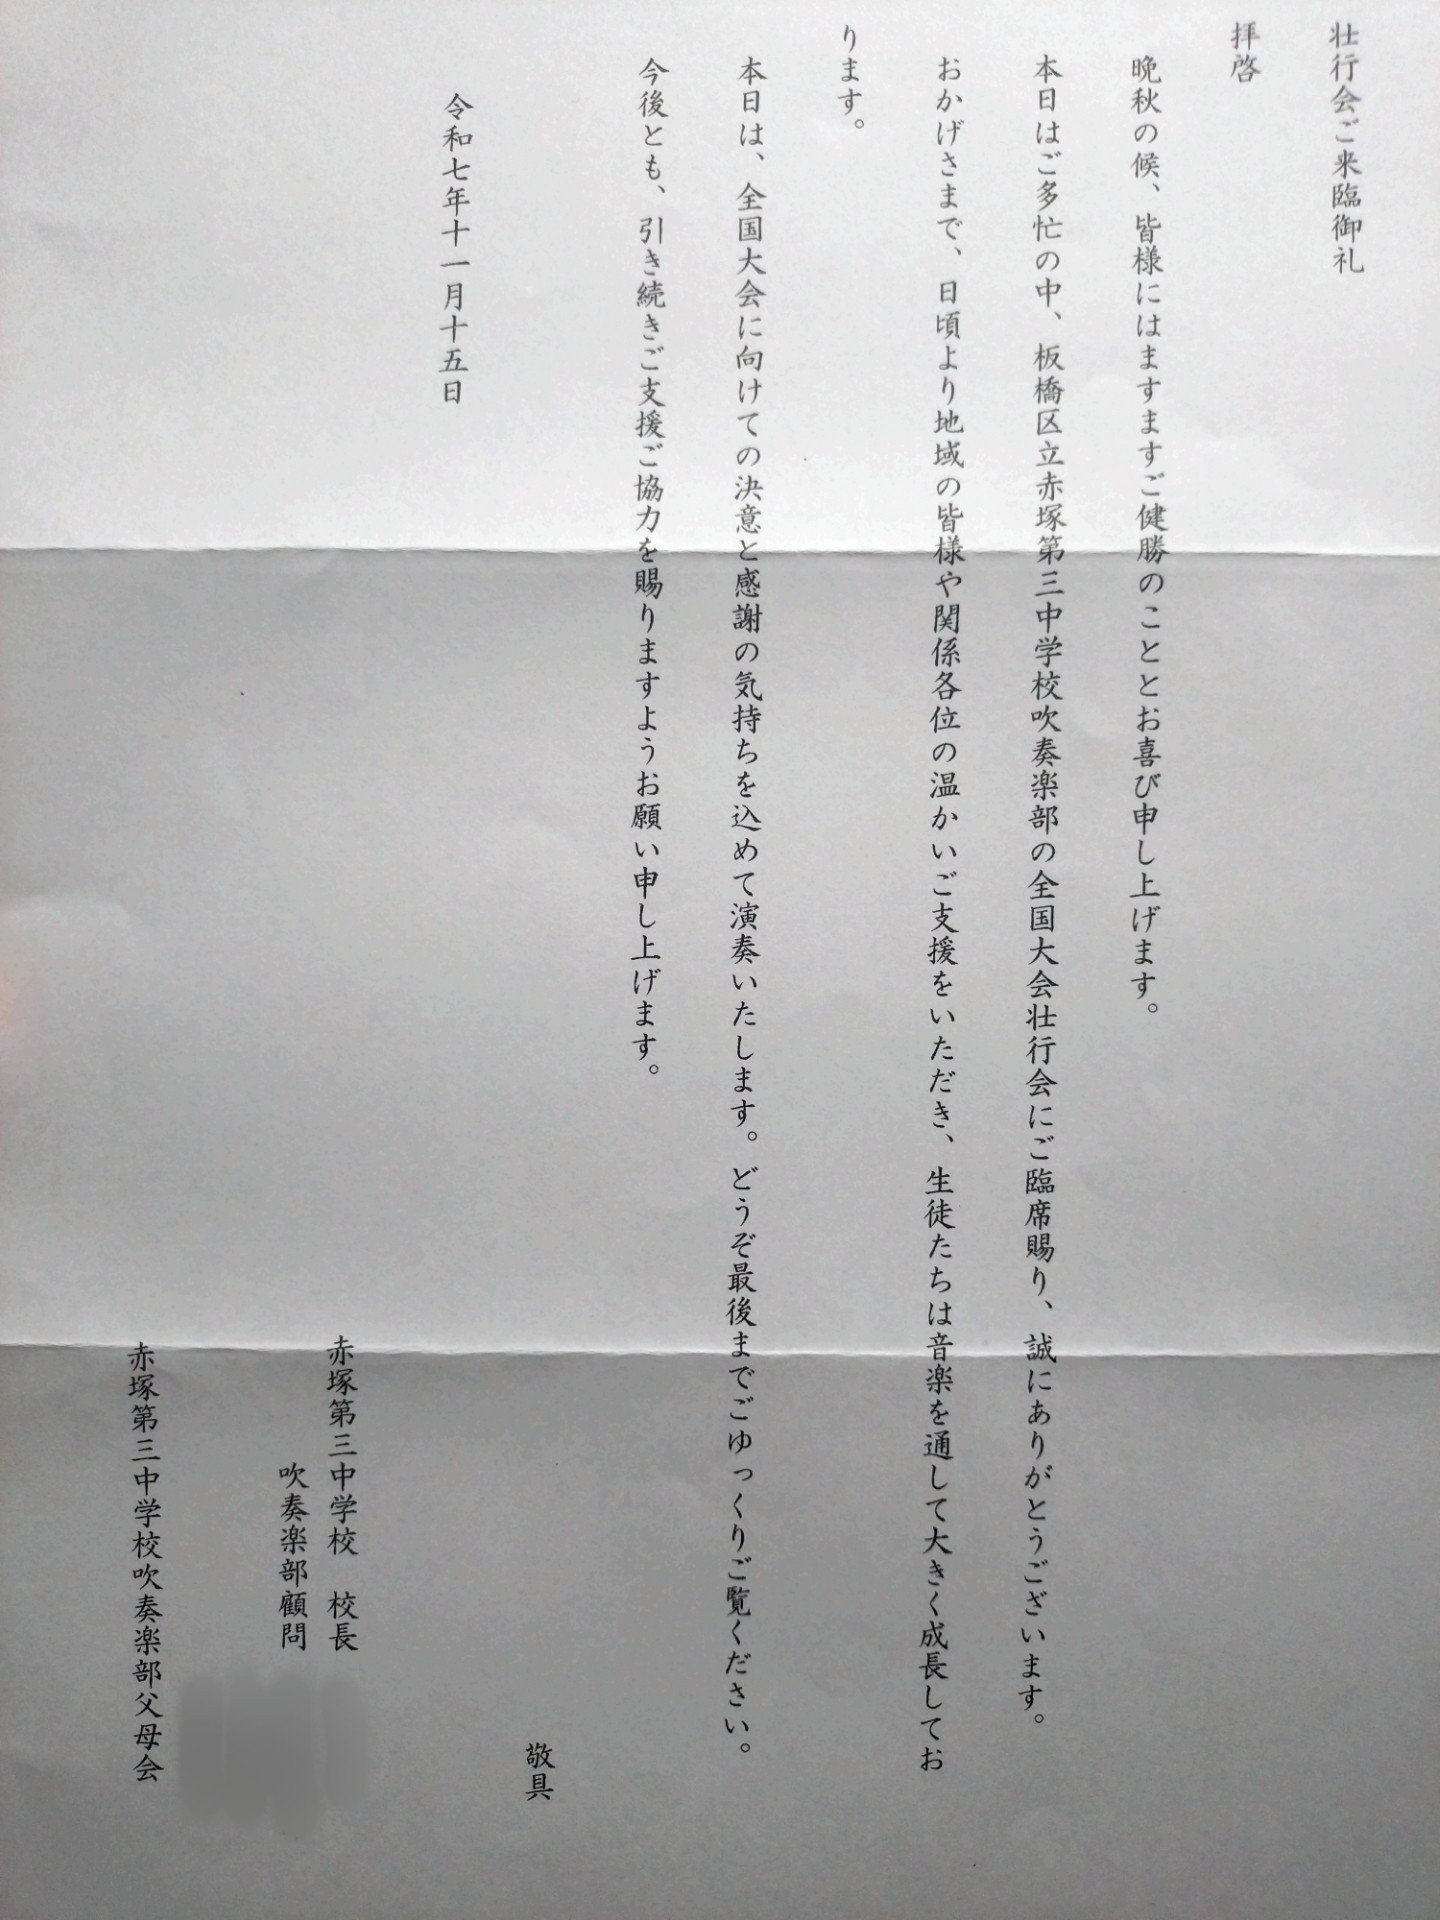 壮行会ご来臨御礼
拝啓
晩秋の候、皆様にはますますご健勝のこととお喜び申し上げます。
本日はご多忙の中、板橋区立赤塚第三中学校吹奏楽部の全国大会壮行会にご臨席賜り、誠にありがとうございます。
おかげさまで、日頃より地域の皆様や関係各位の温かいご支援をいただき、生徒たちは音楽を通して大きく成長してお
ります。
本日は、全国大会に向けての決意と感謝の気持ちを込めて演奏いたします。どうぞ最後までごゆっくりご覧ください。
今後とも、引き続きご支援ご協力を賜りますようお願い申し上げます。
敬具
令和七年十一月十五日
赤塚第三中学校 校長
吹奏楽部顧問
赤塚第三中学校吹奏楽部父母会